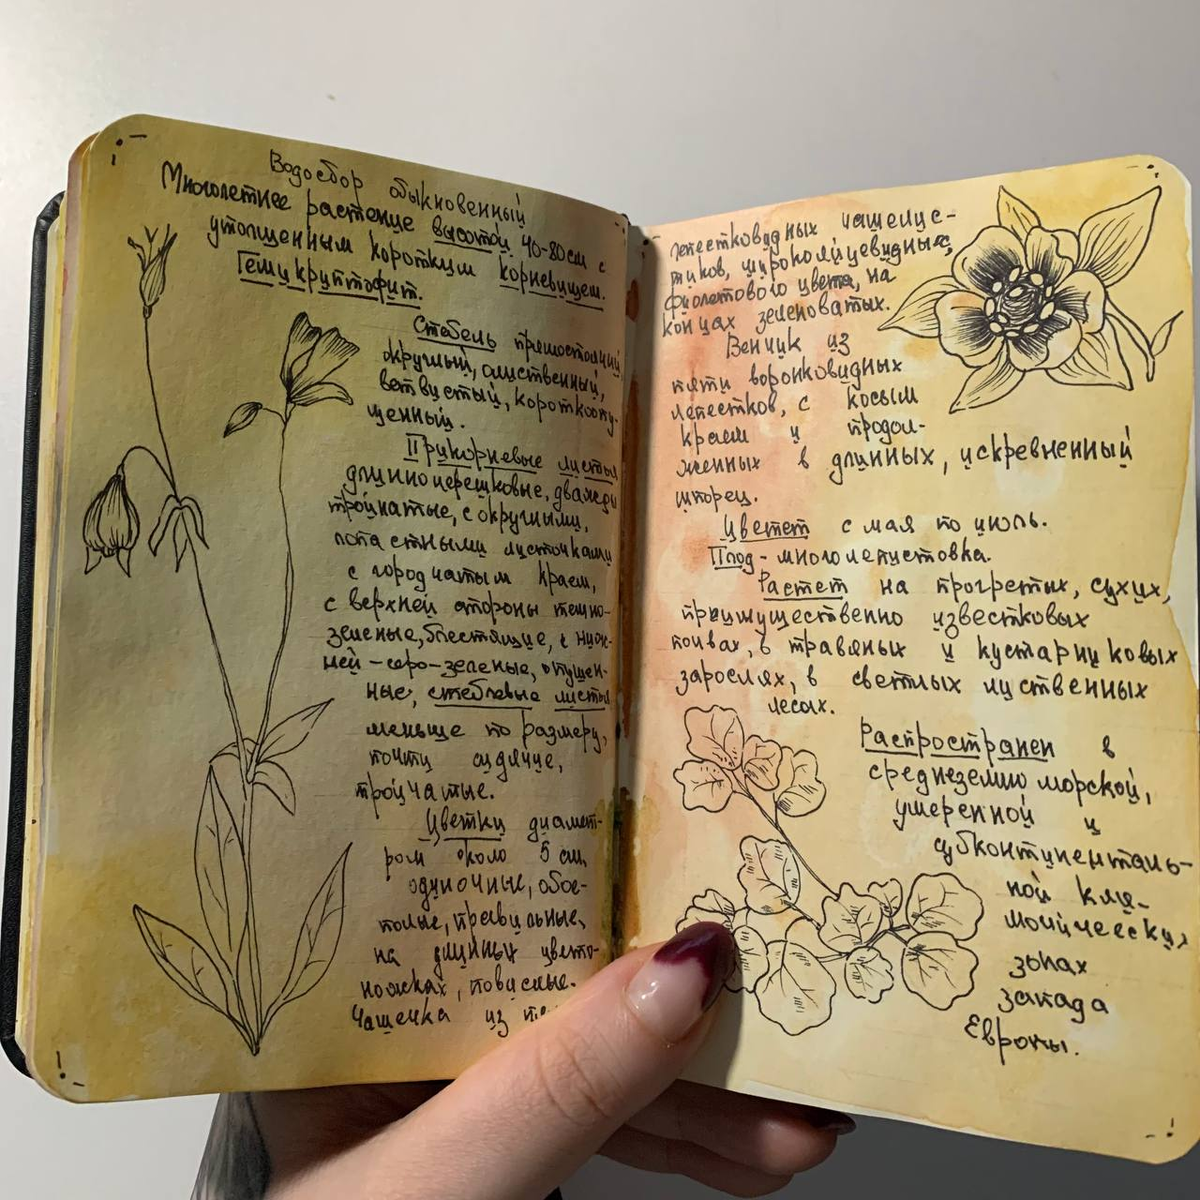 Водосбор обыкновенный
Многолетнее растение высотой 40-80см с
утолщенным коротким корневищем.
Гемикриптофит.
Стебель прямостоячий,
округлый, лиственный,
ветвистый, короткоопу-
щенный.
Прикорневые листья
длинночерешковые, дважды
тройчатые, с округлыми,
лопастными листочками
с городчатым краем,
с верхней стороны темно-
зеленые, блестящие, с ниж-
ней - серо-зеленые, опушен-
ные, стеблевые листья
меньше по размеру,
почти сидячие,
тройчатые.
Цветки диамет-
ром около 5 см,
одиночные, обое-
полые, правильные,
на длинных цвето-
ножках, повислые.
Чашечка из
лепестковидных чашелис-
тиков, ширококлицевидных,
фиолетового цвета, на
концах зеленоватых.
Венчик из
пяти воронковидных
лепестков, с косым
краем и продол-
женных в длинных, искревненный
шпорец.
Цветет с мая по июль.
Плод - многолепустовка.
Растет на прогретых, сухих,
преимущественно известковых
почвах, в травяных и кустарниковых
зарослях, в светлых лиственных
лесах.
Распространен в
средиземно морской,
умеренной и
субконтиненталь-
ной кли-
матических
зонах
запада
Европы.